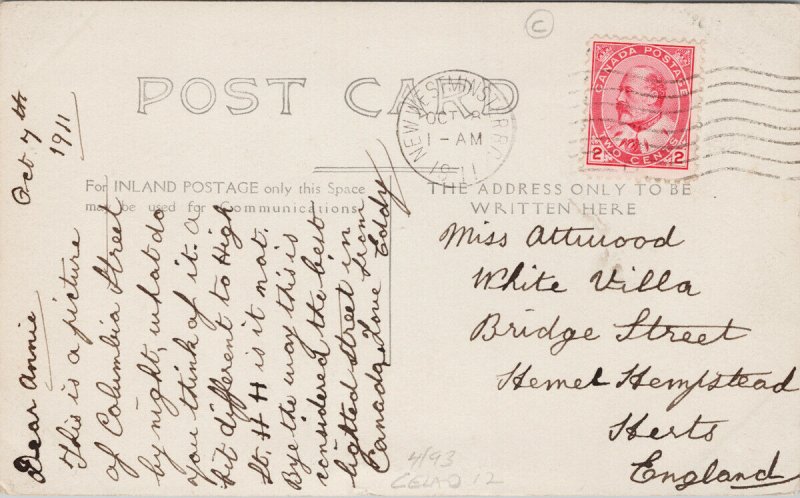 ©
POST CARD
NEW WESTMINSTER B.C.
OCT 8
1 - AM
19 11
CANADA POSTAGE
2 TWO CENTS 2
For INLAND POSTAGE only this Space
may be used for Communications.
THE ADDRESS ONLY TO BE
WRITTEN HERE
Oct 7th
1911
Dear Annie
This is a picture
of Columbia Street
by night, what do
you think of it. a
bit different to High
St. H H is it not.
Bye the way this is
considered the best
lighted street in
Canada, love from
Eddy
Miss Attwood
White Villa
Bridge Street
Hemel Hempstead
Herts
England
4/93